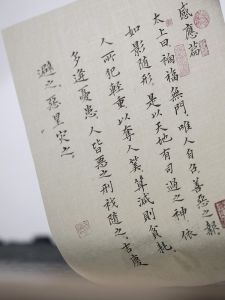 感應篇
太上曰禍福無門唯人自召善惡之報
如影隨形是以天地有司過之神依
人所犯輕重以奪人算算減則貧耗
多逢憂患人皆惡之刑禍隨之吉慶
避之惡星災之